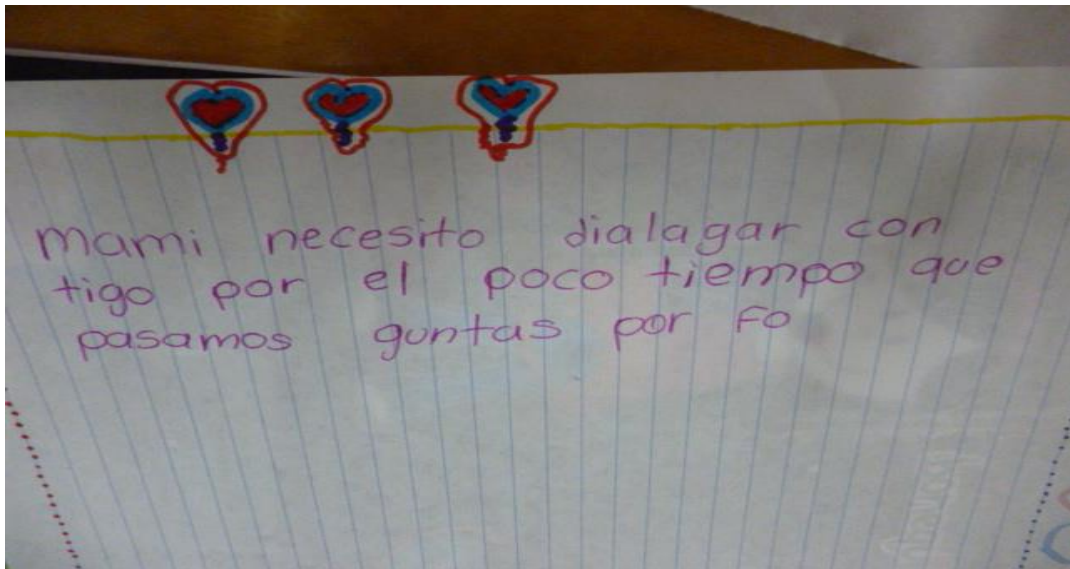 mami necesito dialagar con
tigo por el poco tiempo que
pasamos guntas por fo